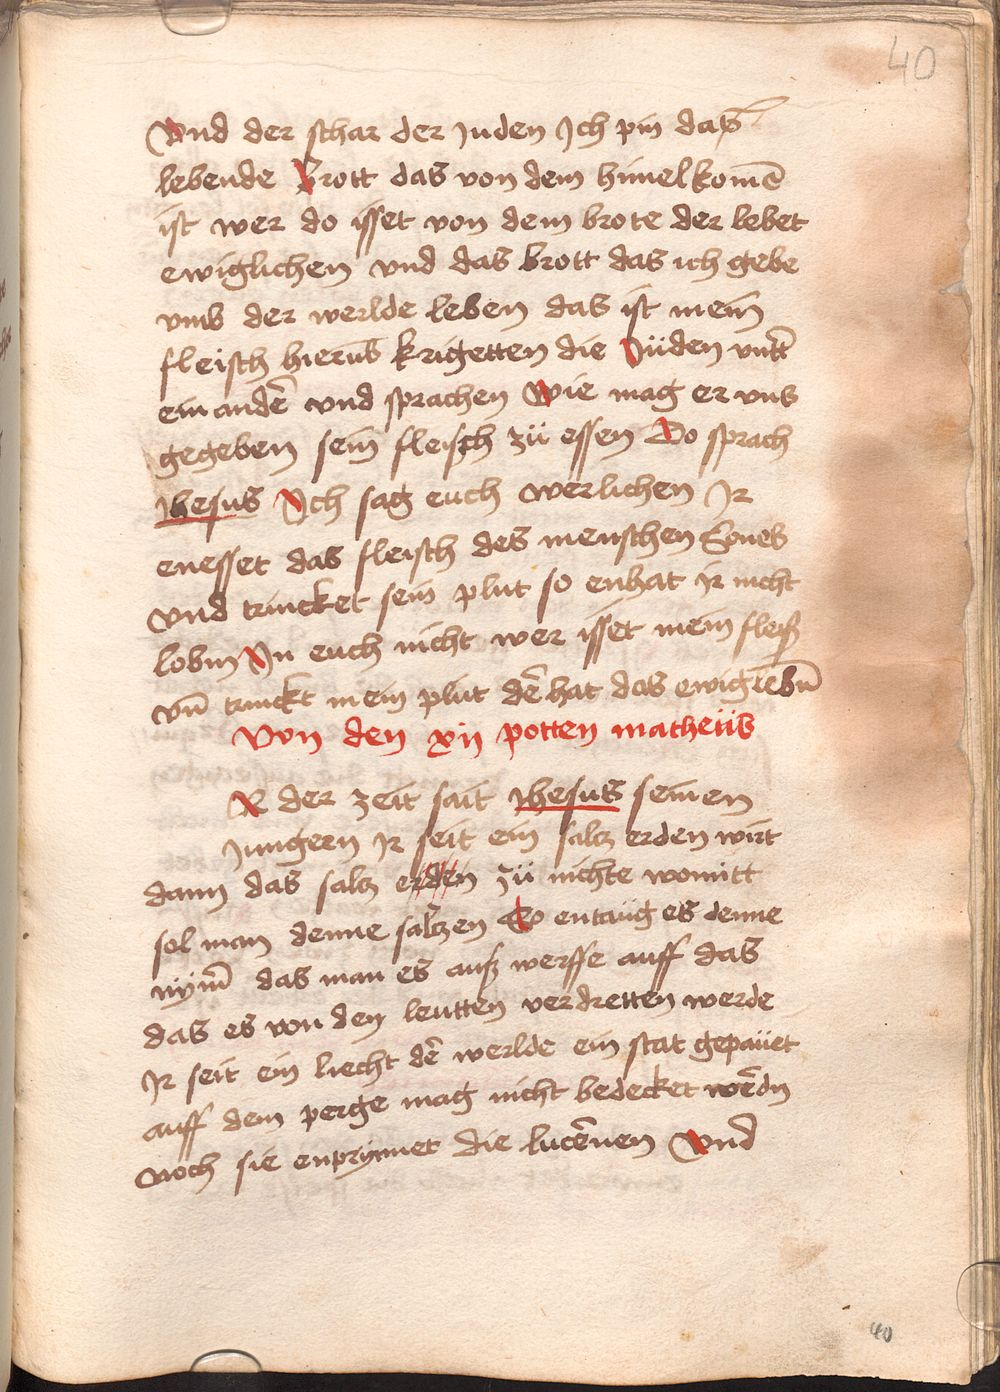 40
Vnd der schar der Juden Ich pin das
lebende Brott das von dem himel komē
ist wer do isset von dem brote der lebet
ewiglichen vnd das brott das ich gebe
vmb der werlde leben das ist mein
fleisch hierūb krigetten die Jüden vntt̄
ein andē vnd sprachen Wie mag er vns
gegeben sein fleisch zü essen Do sprach
Jhesus Ich sag euch werlichen Ir
enesset das fleisch des menschen Sones
vnd trincket sein plut so enhat ir nicht
lobm In euch nicht wer isset mein fleisch
vn̄ trinckt mein plut dē hat das ewig lebn̄
Von den xij potten matheüs
der zeit sait Jhesus seinen
Jungern Ir seit ein saltz erden wirt
dann das saltz erden zü nichte womitt
sol man denne saltzen So entaüg es denne
nÿm̄ das man es auß werffe auff das
das es von den leutten verdretten werde
Ir seit ein liecht dē werlde ein stat gepaüet
auff dem perge mag nicht bedecket wēdn
noch sie enprÿnnet die lucēnen Vnd
40